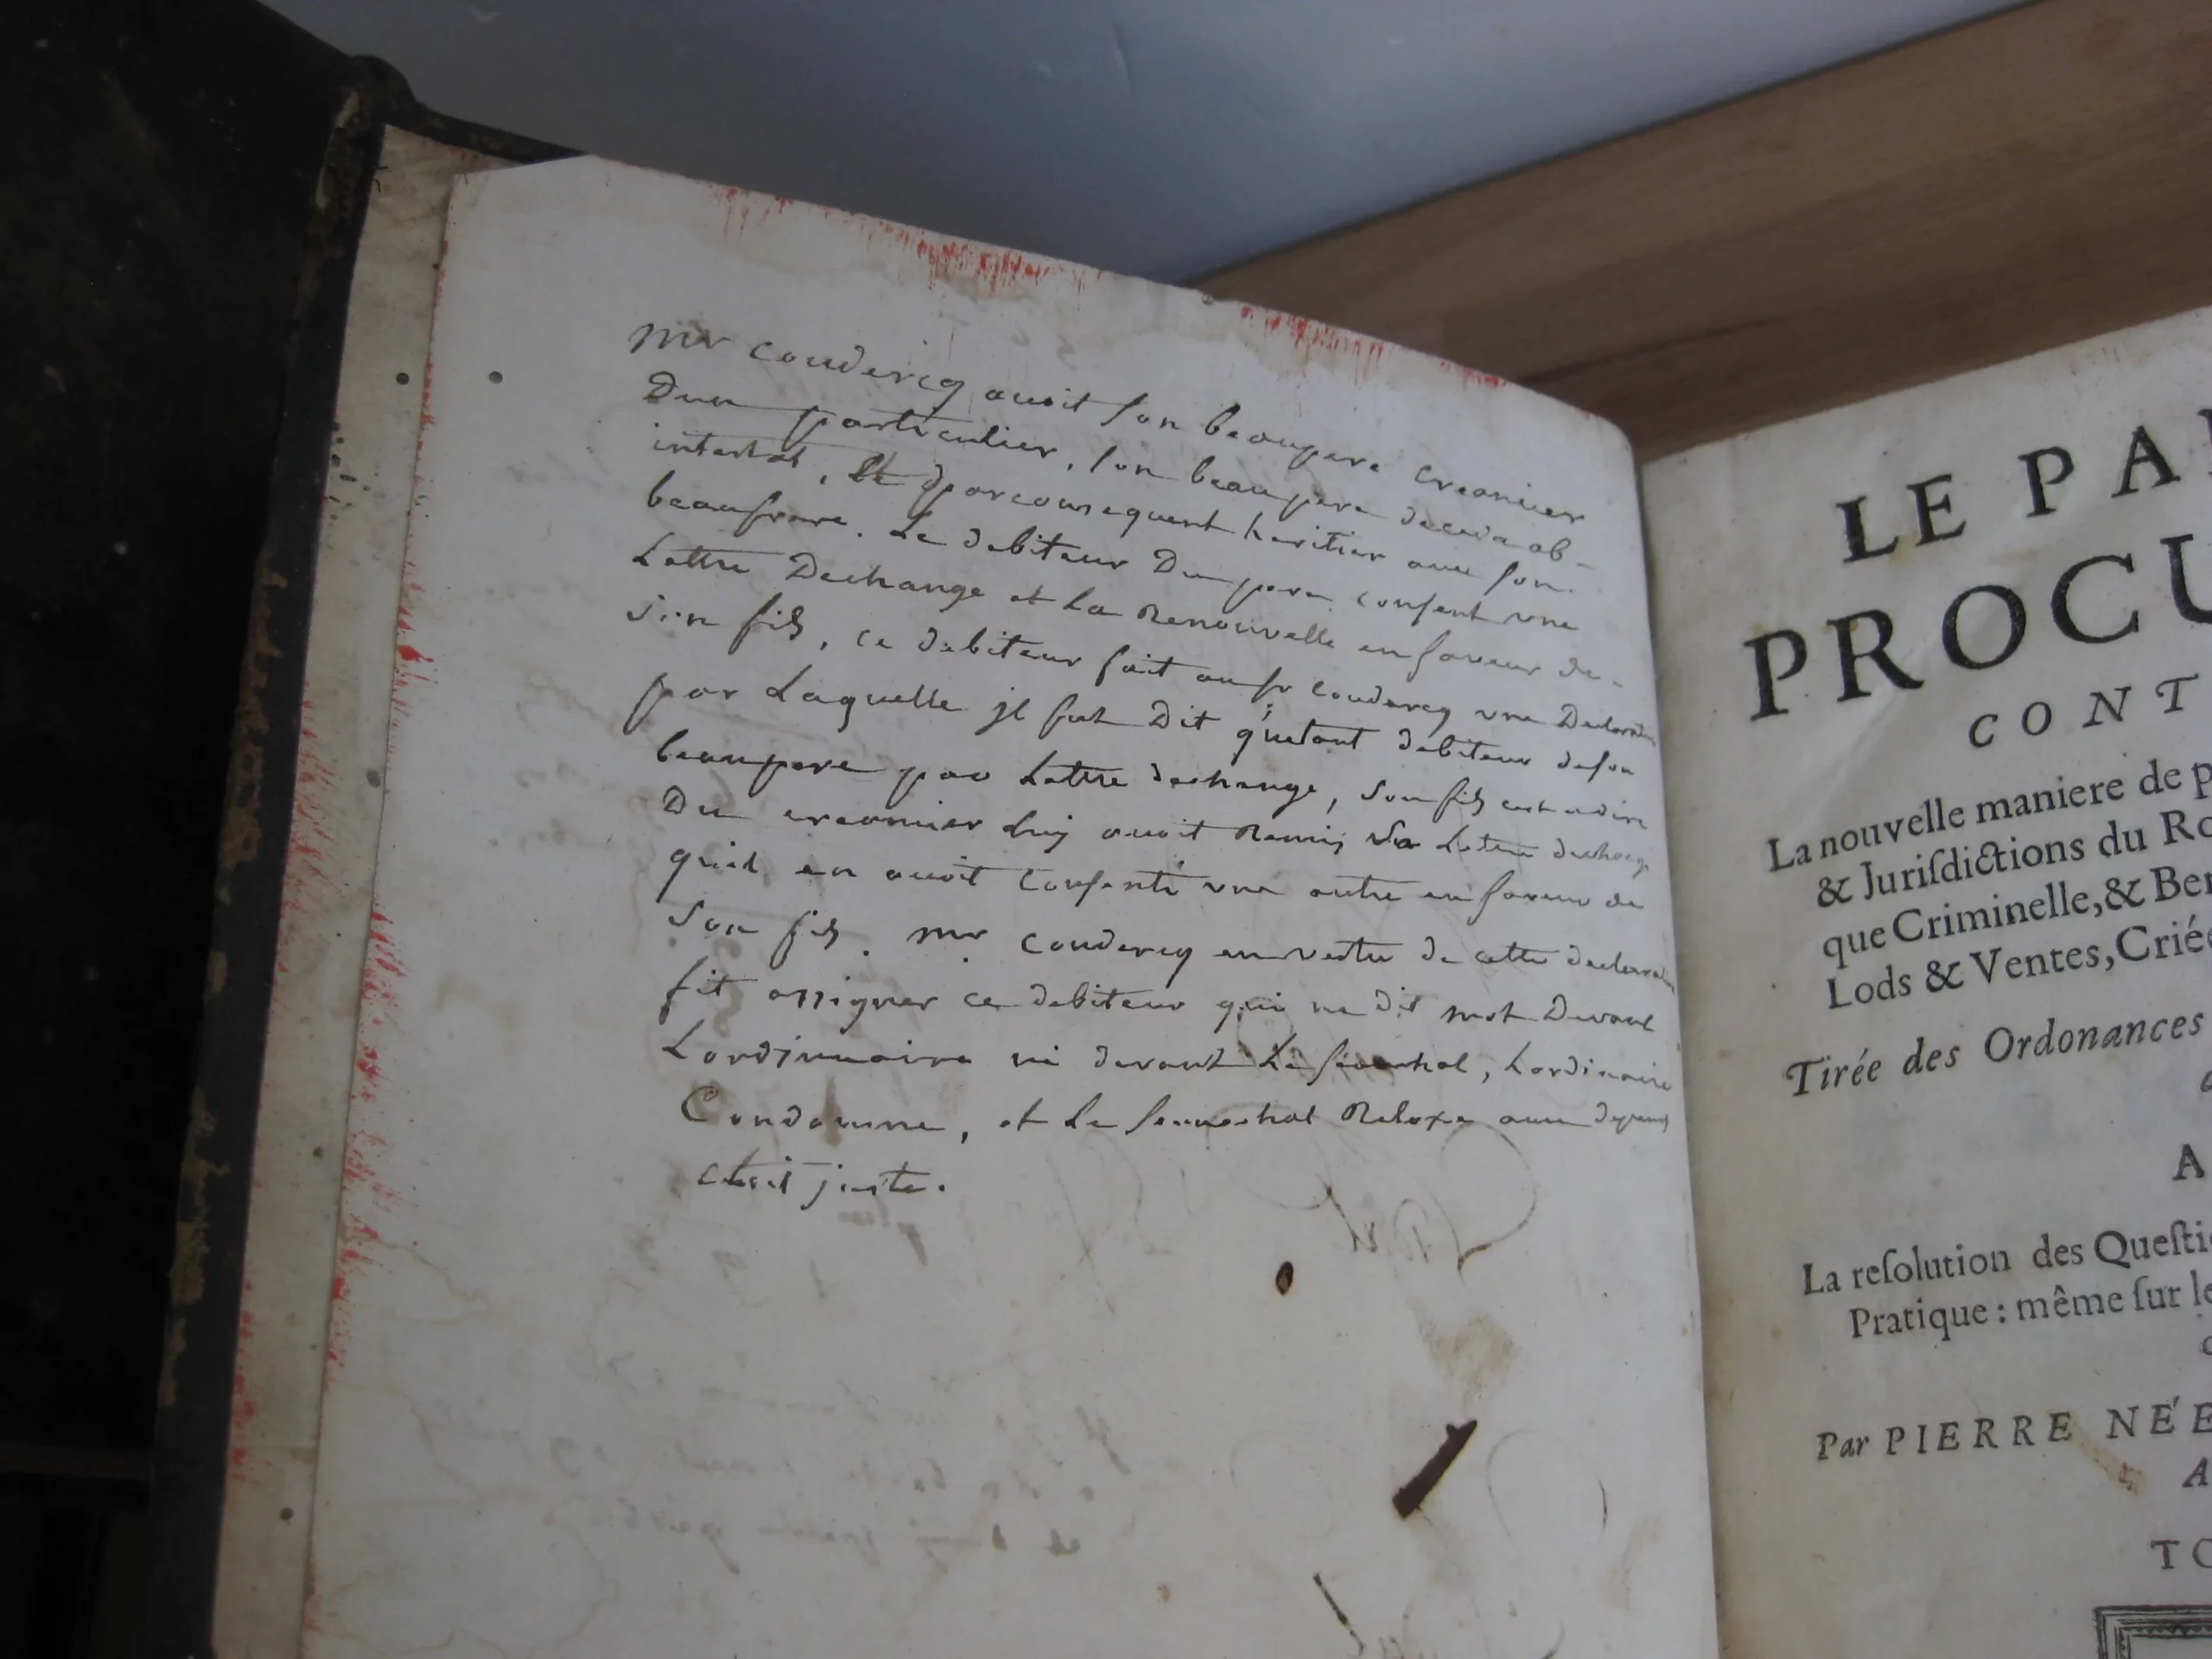 mr coudercq auoit son beaupere creancier
Dun particulier, son beaupere deceda ab-
intestat, et parcoursequent heritier auec son
beaufrere. Le debiteur Du pere consent vne
Lettre Dechange et La Renouvelle en faveur de
son fils, ce debiteur fait au sr coudercq vne Declaration
par Laquelle jl fut Dit qu'etant debiteur de son
beaupere par Lettre dechange, son fils cest adire
Du creancier Luy auoit Remis sa Lettre dechange
quil en auoit consenti vne autre en faveur de
son fils. mr coudercq en vertu de cette declaration
fit assigner ce debiteur qui ne dit mot Devant
Lordinnaire ni devant Le senechal, Lordinaire
Condamne, et Le sennechal Relaxe auec depens
cetoit juste.
LE PA
PROCU
CONT
La nouvelle maniere de p
& Juriſdictions du Ro
que Criminelle, & Ben
Lods & Ventes, Criée
Tirée des Ordonances
A
La reſolution des Queſti
Pratique : même ſur le
Par PIERRE NÉE
A
TO